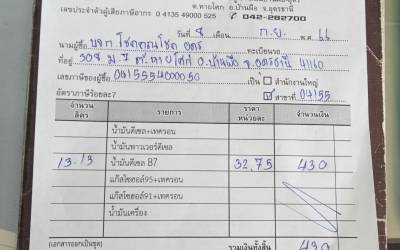 ต.หายโศก อ.บ้านผือ จ.อุดรธานี
เลขประจำตัวผู้เสียภาษีอากร 0 4135 49000 525 042-282700
วันที่ 8 เดือน ก.ย. พ.ศ. 66
นามผู้ซื้อ ทะเบียนรถ
ที่อยู่ 308 ม.7 ต.หายโศก อ.บ้านผือ จ.อุดรธานี 41160
เลขภาษีของผู้ซื้อ 0415554000050 เป็น สำนักงานใหญ่
อัตราภาษีร้อยละ7 สาขาที่ 04155
จำนวน ลิตร รายการ ราคา หน่วยละ จำนวนเงิน
น้ำมันดีเซล+เทครอน
น้ำมันพาวเวอร์ดีเซล
13.13 น้ำมันดีเซล B7 32,75 430
แก๊สโซฮอล์95+เทครอน
แก๊สโซฮอล์91+เทครอน
น้ำมันเครื่อง
(เอกสารออกเป็นชุด) รวมเงินทั้งสิ้น 430